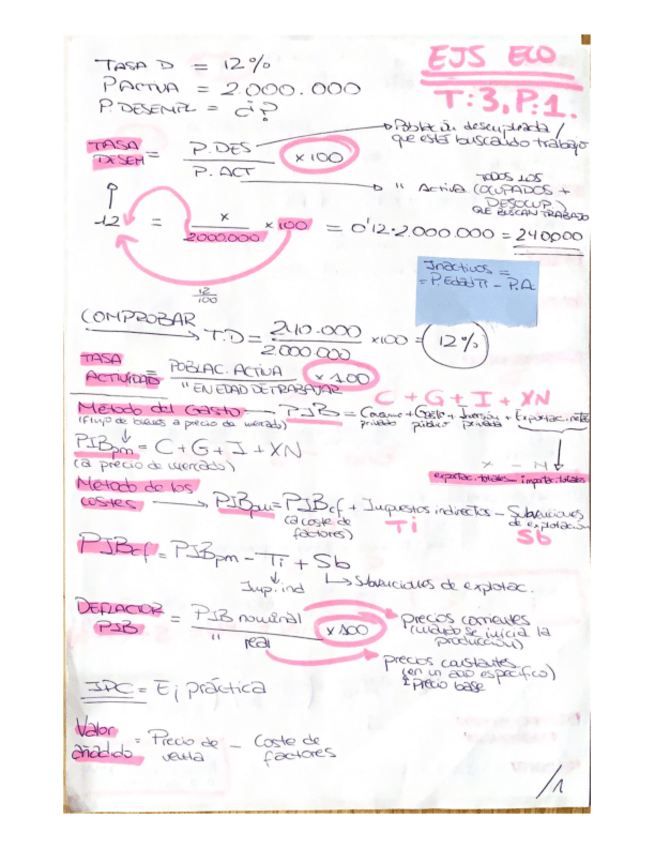 EJS ECO
T:3, P:1.
TASA D = 12%
P.ACTIVA = 2.000.000
P.DESEMPL = ¿?
TASA DESEM = P.DES / P.ACT × 100
Población desempleada /
que está buscando trabajo
TODOS LOS
" Activa (OCUPADOS +
DESOCUP.)
QUE BUSCAN TRABAJO
12 = x / 2000.000 × 100 = 0'12·2.000.000 = 240.000
12 / 100
Inactivos =
= P.Edad Tr - P.A
COMPROBAR
T.D = 240.000 / 2.000.000 ×100 = 12%
TASA ACTIVIDAD = POBLAC. ACTIVA / " EN EDAD DE TRABAJAR × 100
C + G + I + XN
Método del Gasto → PIB = Consumo privado + Gasto público + Inversión privada + Exportac. netas
(Flujo de bienes a precio de mercado)
PIBpm = C + G + I + XN
(a precio de mercado)
X - M
exportac. totales - import. totales
Método de los
costes → PIBpm = PIBcf + Impuestos indirectos - Subvenciones de explotación
(a coste de
factores)
Ti
Sb
PIBcf = PIBpm - Ti + Sb
Imp. ind
Subvenciones de explotac.
DEFLACTOR PIB = PIB nominal / " real × 100
precios corrientes
(cuando se inicia la
producción)
precios constantes
(en un año específico)
precio base
IPC = Ej práctica
Valor añadido = Precio de venta - Coste de factores
/1